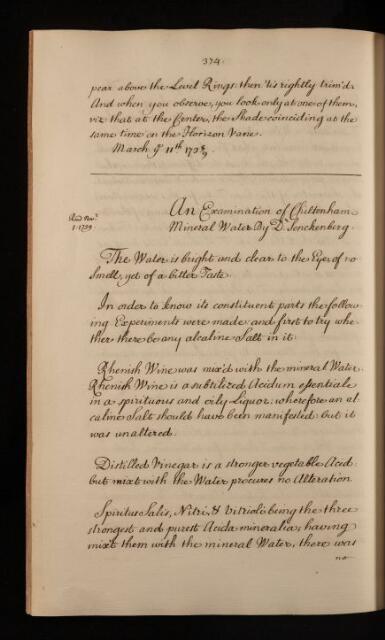 374.
pear above the Level Rings: then 'tis rightly trim'd.
And when you observe, you look only at one of them,
viz. that at the Center, the Shade coinciding at the
same time on the Horizon Vane.
March ye 11th 173 8/9.
An Examination of Cheltenham
Mineral Water By Dr. Senckenberg.
Read Novr.
1. 1739
The Water is bright and clear to the Eye, of no
Smell, yet of a bitter Taste.
In order to know its constituent parts the follow
ing Experiments were made and first to try whe
ther there be any alcaline Salt in it.
Rhenish Wine was mix'd with the mineral Water.
Rhenish Wine is a subtilized Acidum essentiale
in a spirituous and oily Liquor: wherefore an al
caline Salt should have been manifested: but it
was unaltered.
Distilled Vinegar is a stronger vegetable Acid:
but mixt with the Water procures no Alteration.
Spiritus Salis, Nitri, & Vitrioli being the three
strongest and purest Acida mineralia; having
mixt them with the mineral Water, there was
no